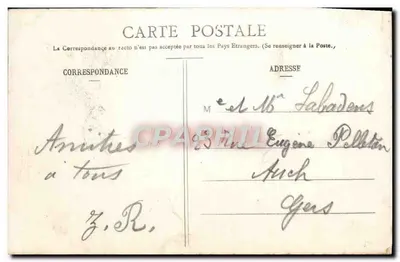 CARTE POSTALE
La Correspondance au recto n'est pas acceptée par tous les Pays Etrangers. (Se renseigner à la Poste.)
CORRESPONDANCE
ADRESSE
Me et Mr Labadens
23 rue Eugène Pelletan
Auch
Gers
Amitiés
à tous
J. R.
CPARAMA